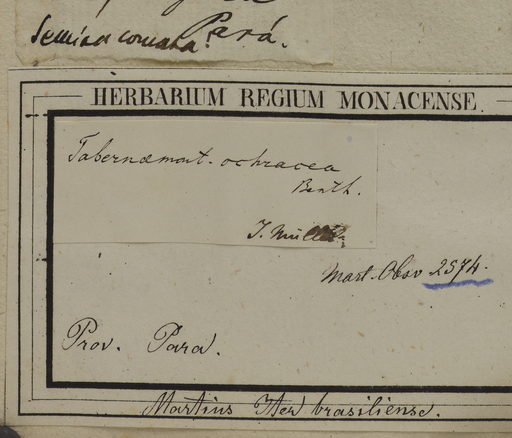 Semina comata. Pará.
HERBARIUM REGIUM MONACENSE
Tabernæmont. ochracea
Benth.
J. Müller
Mart. Obsv 2574.
Prov. Para.
Martius Iter brasiliense.